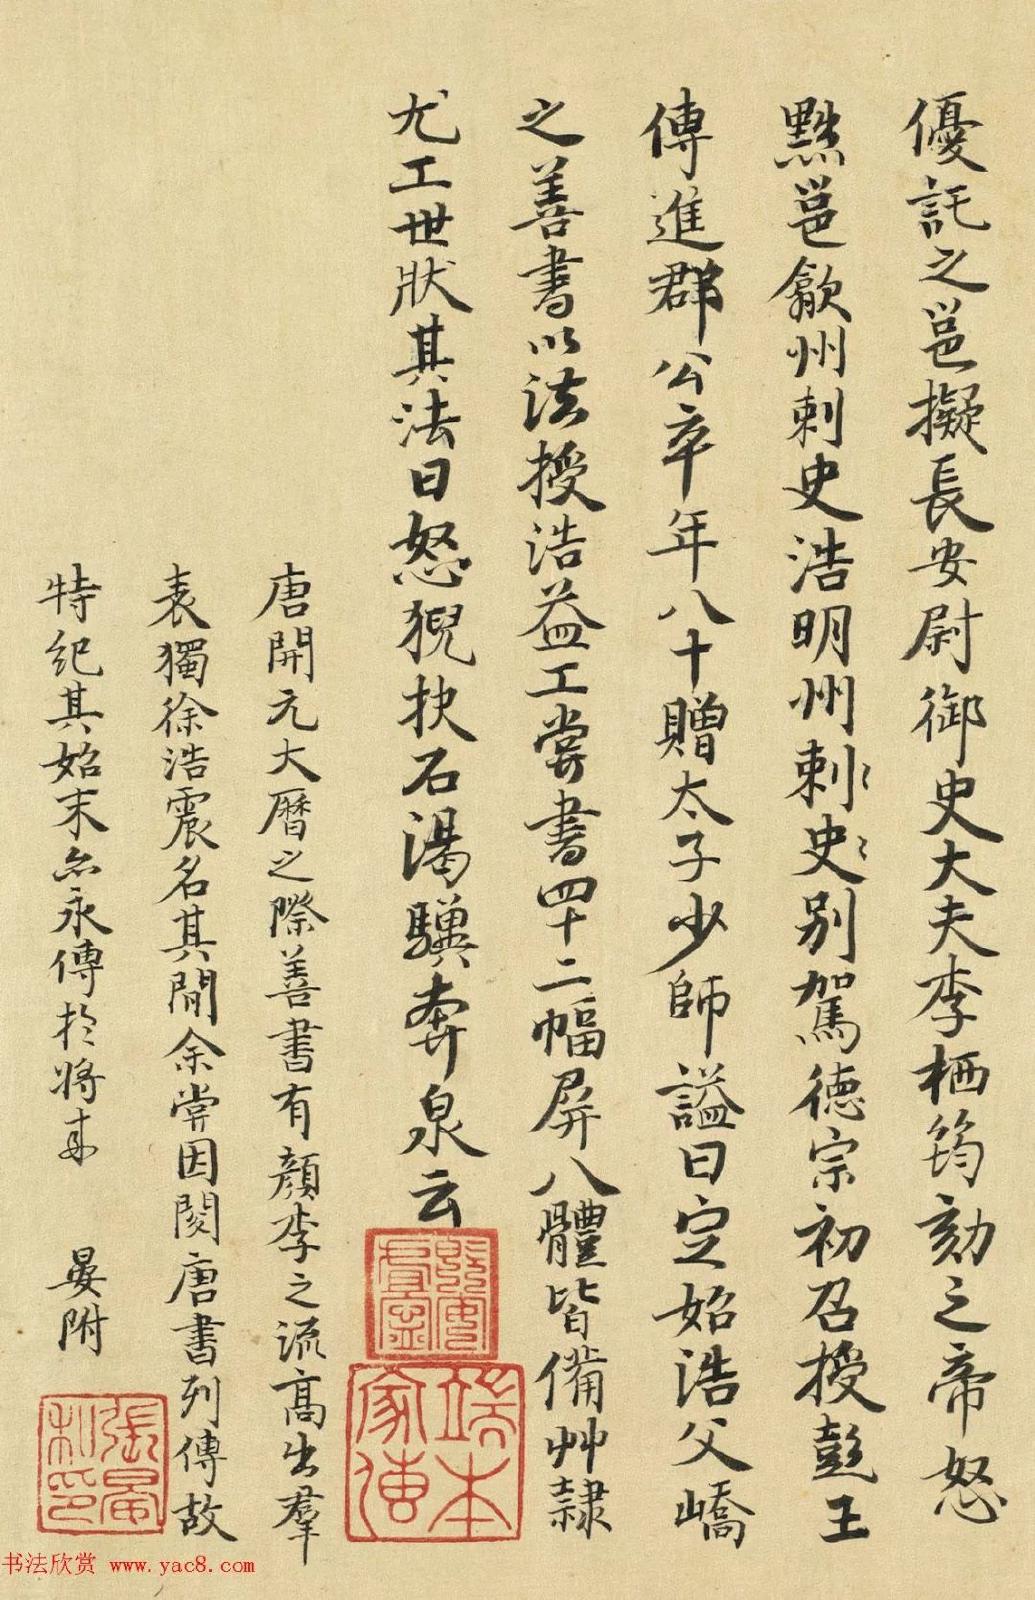 優託之邕擬長安尉御史大夫李栖筠劾之帝怒
黜邕歙州刺史浩明州刺史別駕德宗初召授彭王
傅進郡公卒年八十贈太子少師謚曰定始浩父嶠
之善書以法授浩益工嘗書四十二幅屏八體皆備艸隸
尤工世狀其法曰怒猊抉石渴驥奔泉云
唐開元大曆之際善書有顏李之流高出羣
表獨徐浩震名其間余嘗因閱唐書列傳故
特紀其始末亦永傳於將來 晏附
端本
家傳
張晏
私印
书法欣赏 www.yac8.com